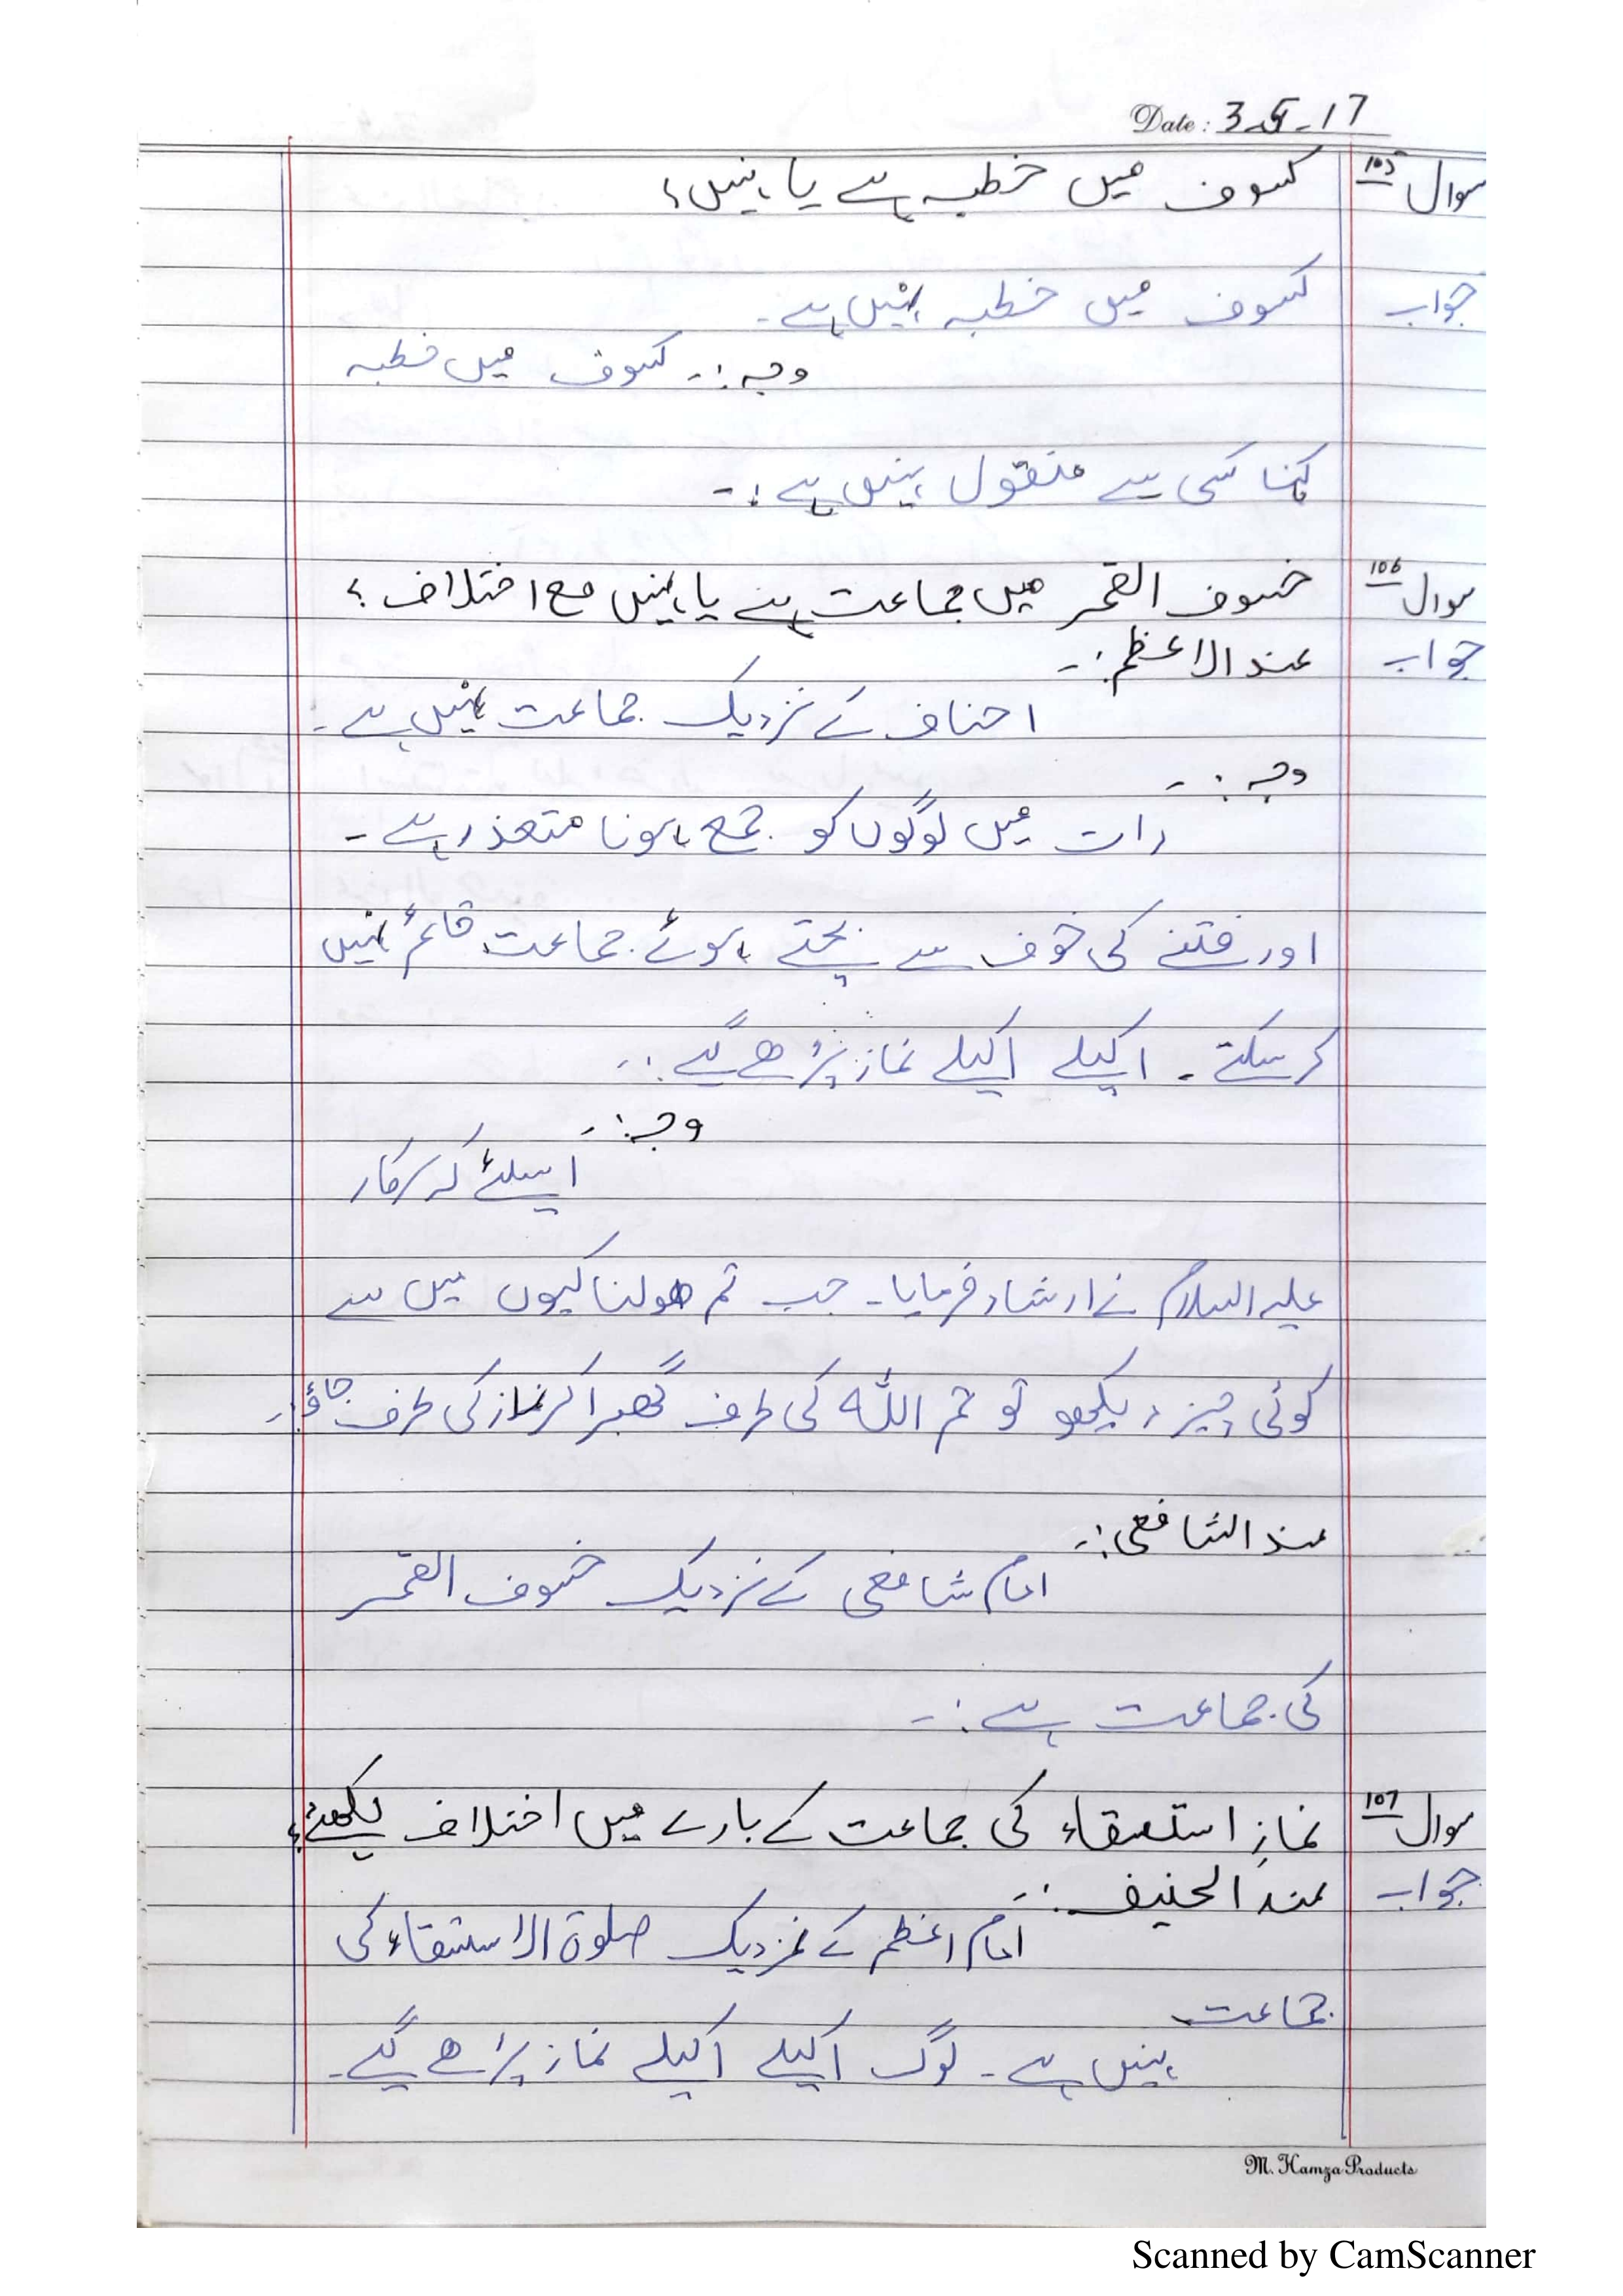 Date: 3-5-17
سوال 105 کسوف میں خطبہ ہے یا نہیں؟
جواب کسوف میں خطبہ نہیں ہے۔
وجہ:۔ کسوف میں خطبہ
کہنا کسی سے منقول نہیں ہے:۔
سوال 106 خسوف القمر میں جماعت ہے یا نہیں مع اختلاف؟
جواب عند الاعظم:۔
احناف کے نزدیک جماعت نہیں ہے:
وجہ:۔
رات میں لوگوں کو جمع ہونا متعذر ہے۔
اور فتنے کی خوف سے بچتے ہوئے جماعت قائم نہیں
کر سکتے۔ اکیلے اکیلے نماز پڑھے گے:۔
وجہ:۔
اسلئے کہ سرکار
علیہ السلام نے ارشاد فرمایا۔ جب تم ھولناکیوں میں سے
کوئی چیز دیکھو تو تم اللہ کی طرف گھبرا کر نماز کی طرف جاؤ:۔
عند الشافعی:۔
امام شافعی کے نزدیک خسوف القمر
کی جماعت ہے:۔
سوال 107 نمازِ استسقاء کی جماعت کے بارے میں اختلاف لکھئے؟
جواب عند الحنیف:۔
امام اعظم کے نزدیک صلوۃ الاستسقاء کی
جماعت
نہیں ہے۔ لوگ اکیلے اکیلے نماز پڑھے گے۔
M. Hamza Products
Scanned by CamScanner